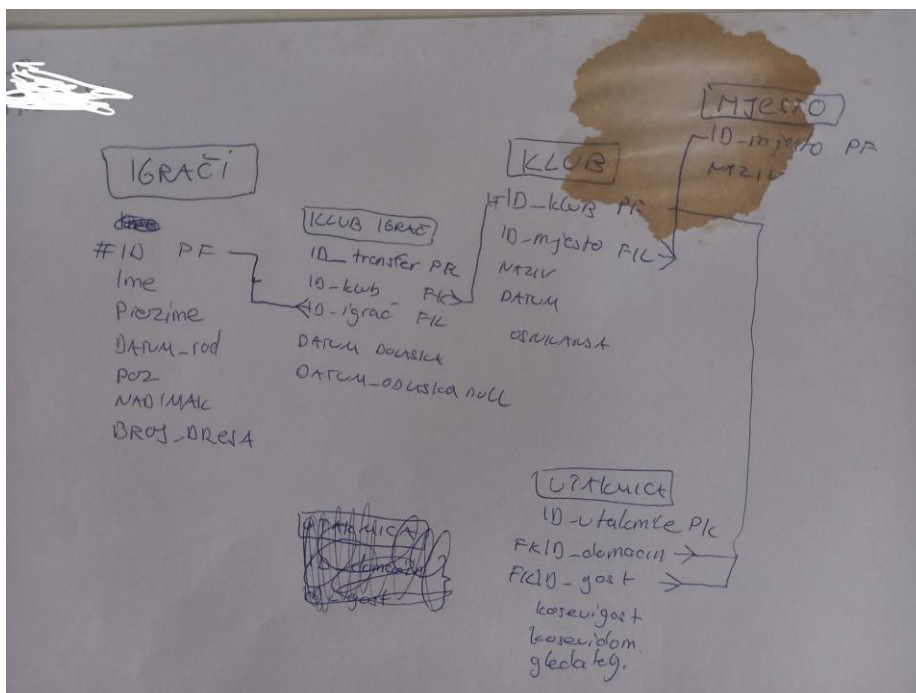 IGRAČI
#ID PF
Ime
Prezime
DATUM_rod
POZ
NADIMAK
BROJ_DRESA
KLUB IGRAČ
ID_transfer PK
ID-klub FK
ID-igrač FK
DATUM DOLASKA
DATUM_ODLASKA NULL
KLUB
#ID_KLUB PF
ID-mjesto FK
NAZIV
DATUM
OSNIVANJA
MJESTO
ID-mjesto PF
NAZIV
UTAKMICA
ID_domacin
ID_gost
UTAKMICA
ID-utakmice PK
FK ID_domacin
FK ID_gost
kosevigost
kosevidom.
gledatelj.